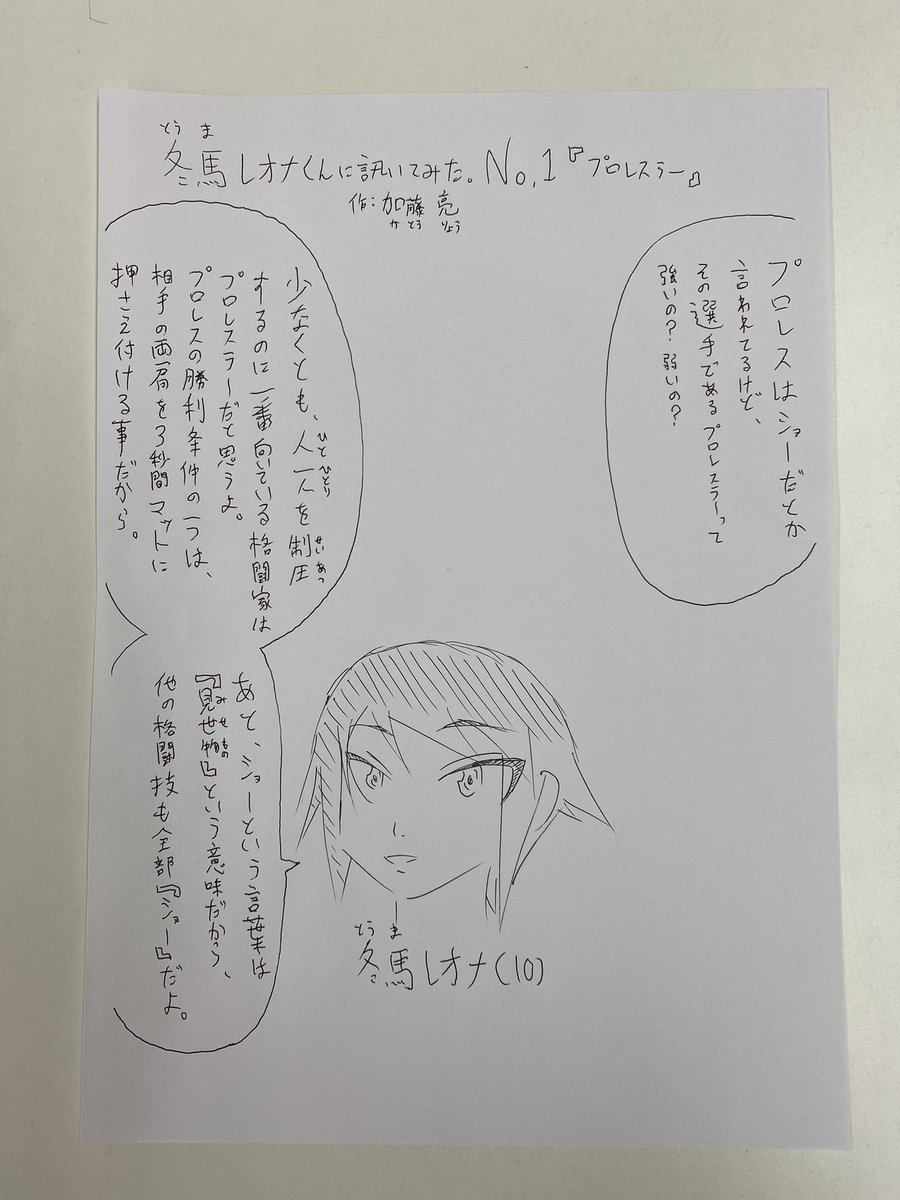 冬馬レオナくんに訊いてみた。No.1『プロレスラー』
とうま
作:加藤 亮
かとう りょう
プロレスはショーだとか
言われてるけど、
その選手であるプロレスラーって
強いの?弱いの?
少なくとも、人一人を制圧
ひとひとり せいあつ
するのに一番向いている格闘家は
プロレスラーだと思うよ。
プロレスの勝利条件の一つは、
相手の両肩を3秒間マットに
押さえ付ける事だから。
あと、ショーという言葉は
『見世物』という意味だから、
みせもの
他の格闘技も全部『ショー』だよ。
とうま
冬馬レオナ(10)